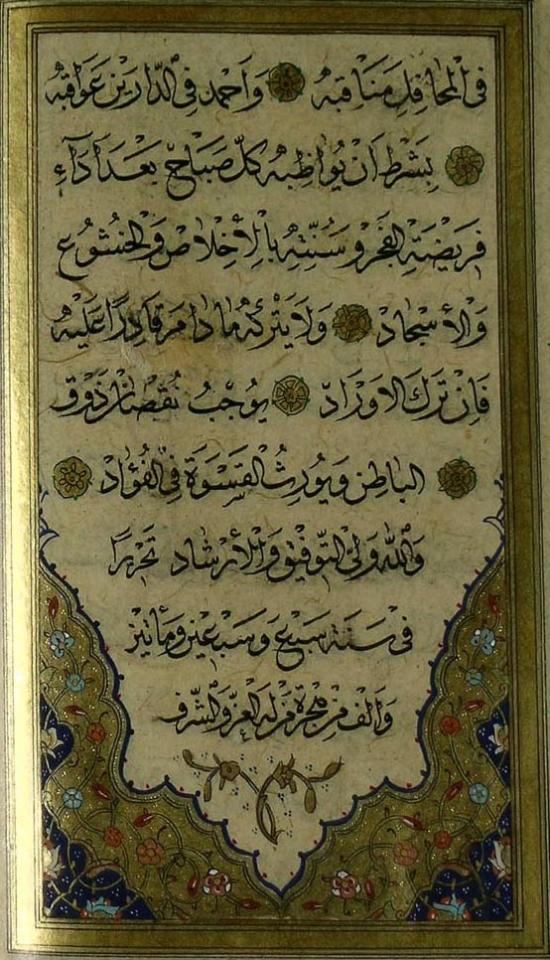 فِى الْمَحَافِلِ مَنَاقِبَهُ وَاَحْمَدَ فِى الدَّارَيْنِ عَوَاقِبَهُ
بِشَرْطِ اَنْ يُوَاظِبَهُ كُلَّ صَبَاحٍ بَعْدَ اَدَآءِ
فَرِيضَةِ الْفَجْرِ وَسُنَّتِهِ بِالْاِخْلَاصِ وَالْخُشُوعِ
وَالْاَسْحَادْ وَلَا يَتْرُكَهُ مَا دَامَ قَادِرًا عَلَيْهِ
فَاِنْ تَرَكَ الْاَوْرَادَ يُوجِبُ نُقْصَانَ ذَوْقِ
الْبَاطِنِ وَيُورِثُ الْقَسْوَةَ فِى الْفُؤَادْ
وَاللهُ وَلِىُّ التَّوْفِيقِ وَالْاِرْشَادِ تَحْرِيرًا
فِى سَنَةِ سَبْعٍ وَسَبْعِينَ وَمِأَتَيْنِ
وَاَلْفٍ مِنْ هِجْرَةِ مَنْ لَهُ الْعِزُّ وَالشَّرَفُ